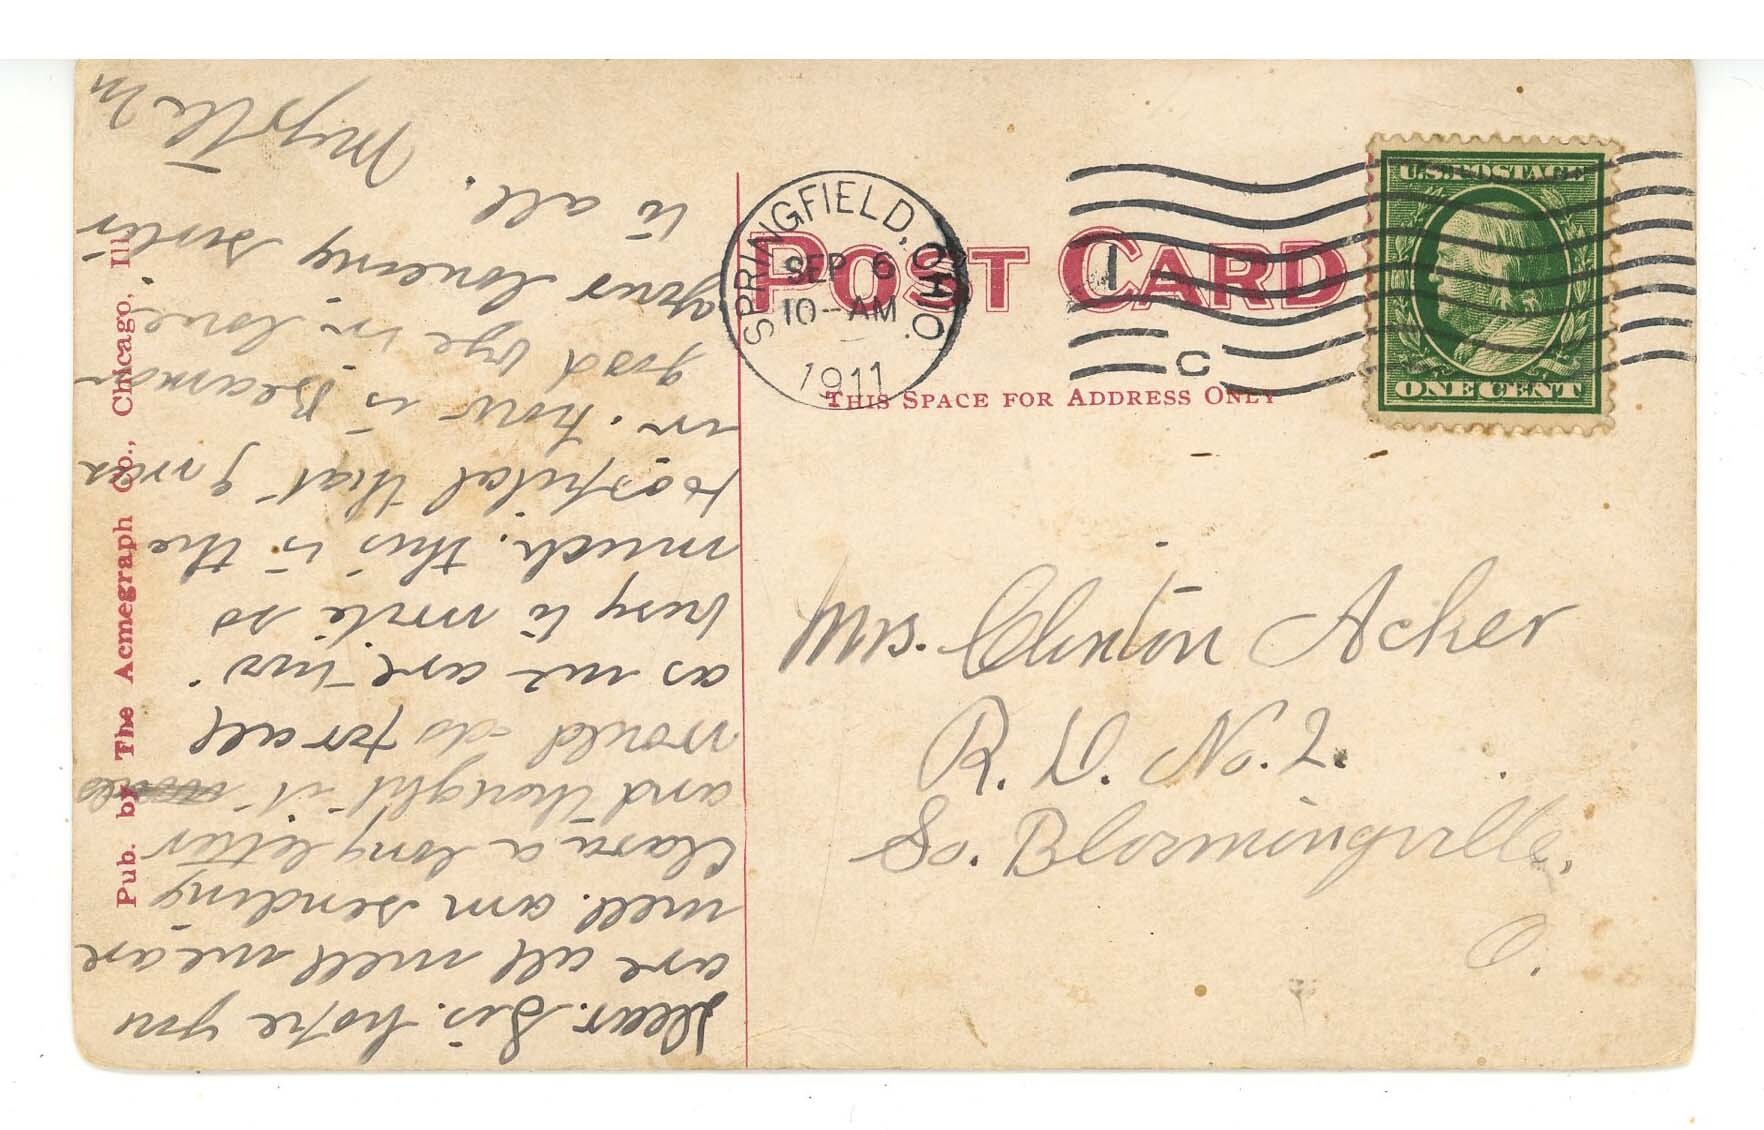 Dear. Sis. hope you
are all well we are
well. am sending
Clara a long letter
and thought it
would do for all
as we are two
busy to write so
much. this is the
hospital that I was
in. how is Beaman
good bye in love
your loveing sister
to all.
Myrtle M
Pub. by The Acmegraph Co., Chicago, Ill.
SPRINGFIELD, OHIO.
SEP 6
10-AM
1911
1
C
POST CARD
THIS SPACE FOR ADDRESS ONLY
U.S. POSTAGE
ONE CENT
Mrs. Clinton Acker
R. D. No. 2.
So. Bloomingville,
O.